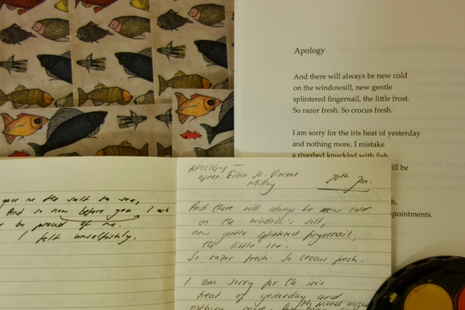 Apology
And there will always be new cold
on the windowsill, new gentle
splintered fingernail, the little frost.
So razor fresh. So crocus fresh.
I am sorry for the iris heat of yesterday
and nothing more. I mistake
a riverbed knuckled with fish
will be
h.
pointments.
gave me the salt to see,
And so now before you, I ask
to be proud of me.
I felt unselfishly.
APOLOGY —
after Edna St Vincent
Millay
20th Jan.
And there will always be new cold
on the window's sill,
new gentle splintered fingernail,
the little ice.
So razor fresh. So crocus fresh.
I am sorry for the iris
heat of yesterday and
nothing more.